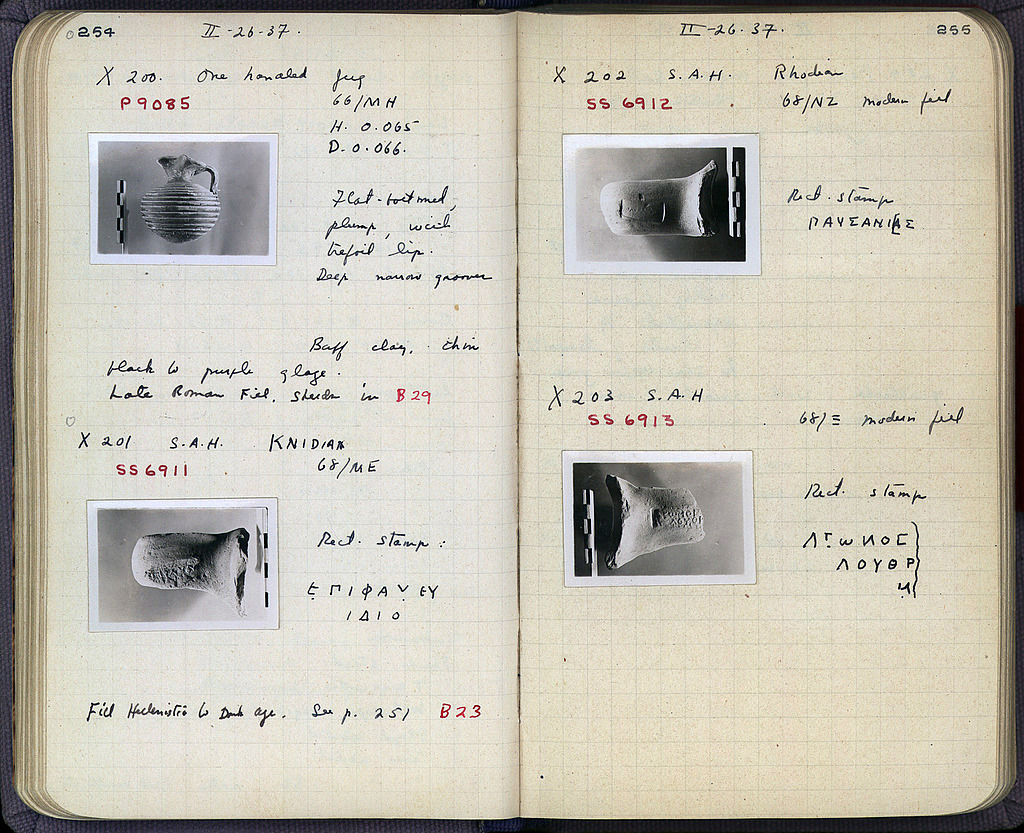 254
II-26-37.
X 200. One handled Jug
P 9085
66/ΜΗ
H. 0.065
D. 0.066.
Flat-bottomed,
plump, with
trefoil lip.
Deep narrow grooves
Buff clay, thin
black to purple glaze.
Late Roman Fill, sherds in B29
X 201 S.A.H. KNIDIAN
SS 6911
68/ΜΕ
Rect. stamp:
ΕΠΙΦΑΝΕΥ
ΙΔΙΟ
Fill Hellenistic to Dark age. See p. 251 B23
II-26-37.
255
X 202 S.A.H. Rhodian
SS 6912
68/ΝΖ modern fill
Rect. stamp
ΠΑΥΣΑΝΙΑΣ
X 203 S.A.H
SS 6913
68/Ξ modern fill
Rect. stamp
ΛΟΥΘΡ